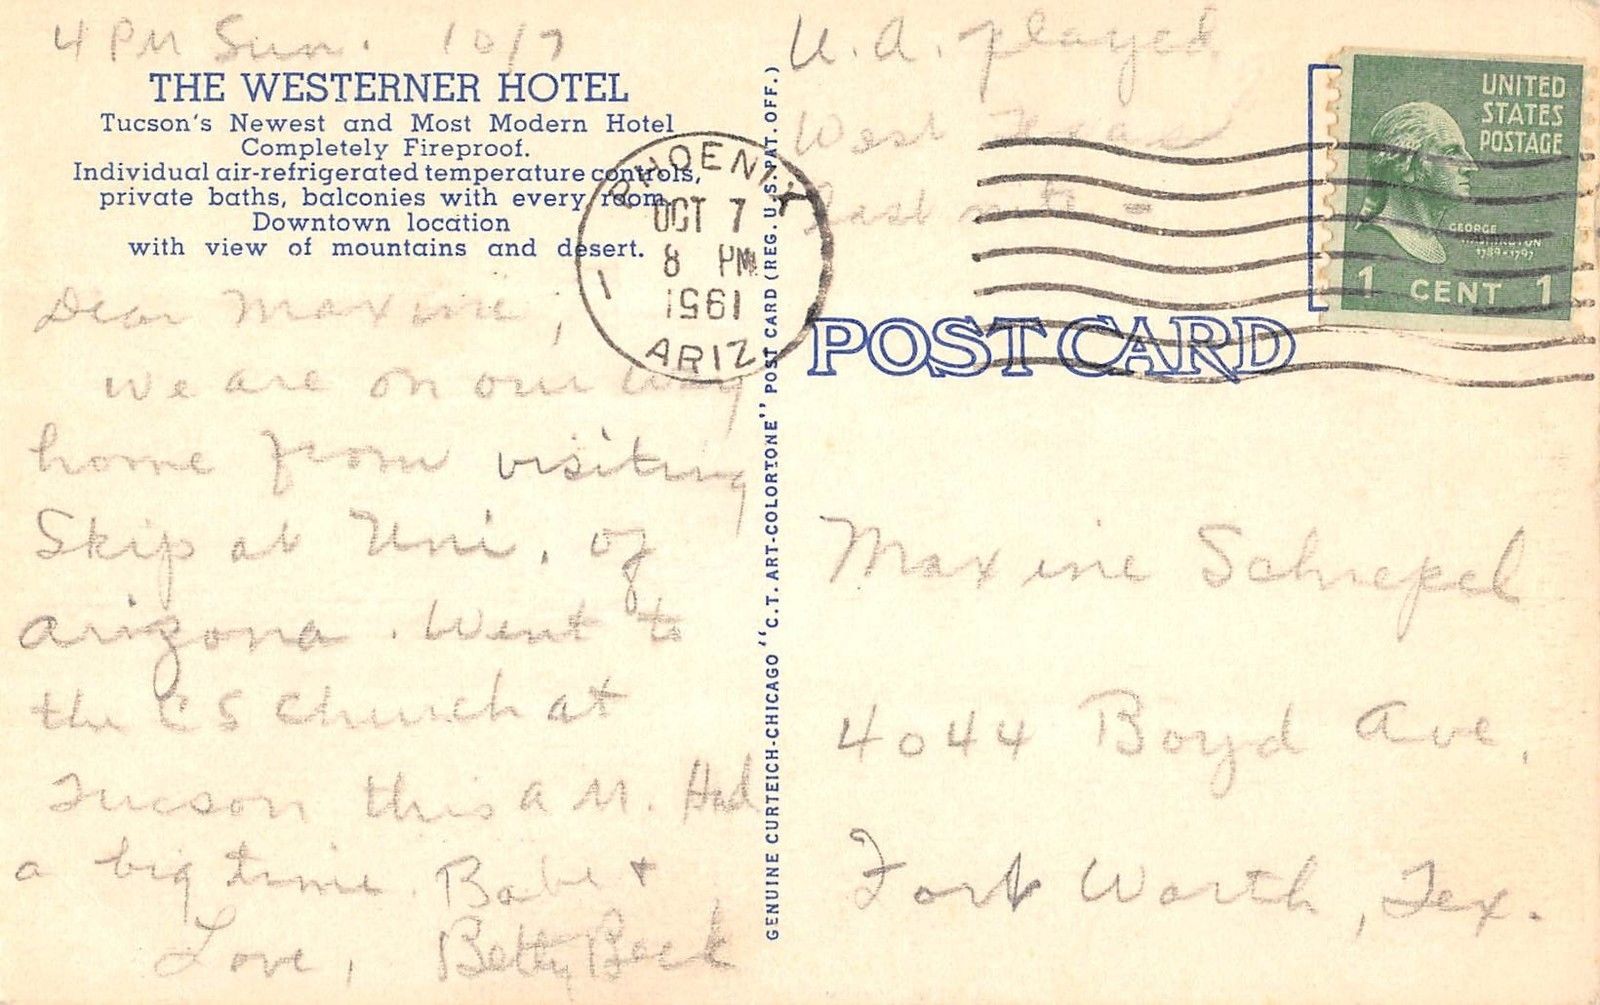 4 PM Sun. 10/7
THE WESTERNER HOTEL
Tucson's Newest and Most Modern Hotel
Completely Fireproof.
Individual air-refrigerated temperature controls,
private baths, balconies with every room.
Downtown location
with view of mountains and desert.
Dear Maxine;
We are on our way
home from visiting
Skip at Uni. of
Arizona. Went to
the CS Church at
Tucson this A M. Had
a big time. Babe +
Love, Betty Beck
U.A. played
West Texas
last nite -
PHOENIX
OCT 7
8 PM
1951
ARIZ
1
UNITED
STATES
POSTAGE
GEORGE
WASHINGTON
1789-1797
1 CENT 1
POST CARD
GENUINE CURTEICH-CHICAGO "C.T. ART-COLORTONE" POST CARD (REG. U.S. PAT. OFF.)
Maxine Schrepel
4044 Boyd Ave.
Fort Worth, Tex.